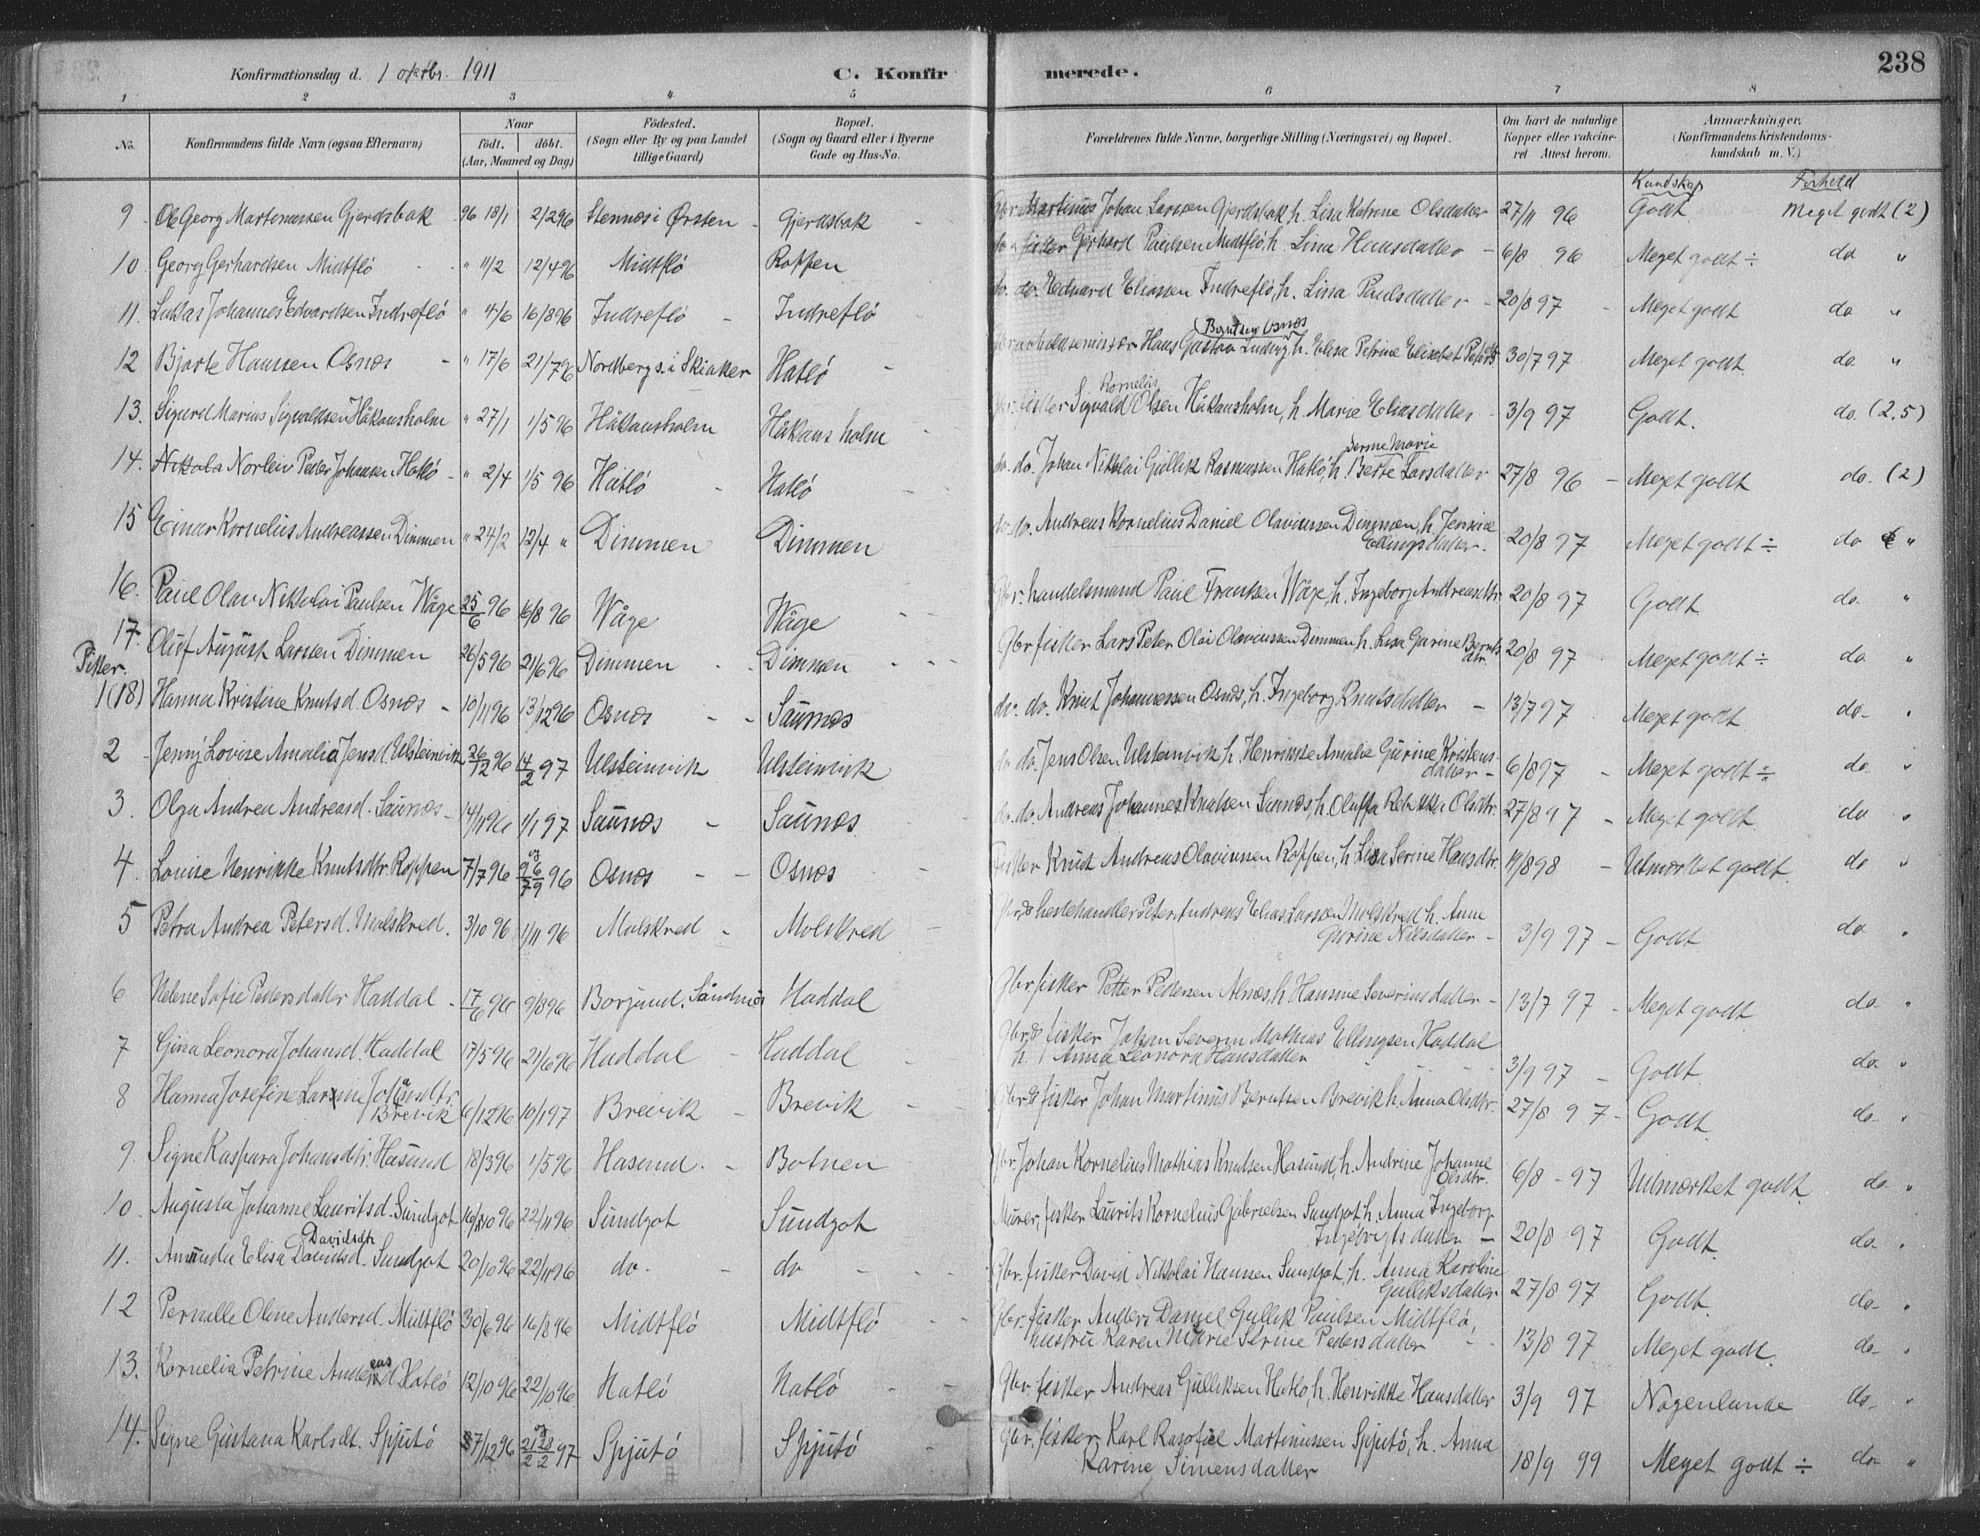 Konfirmationsdag d. 1 oktbr. 1911 C. Konfir merede. 238
1 2 3 4 5 6 7 8
No. Konfirmandens fulde Navn (ogsaa Efternavn) Naar født. døbt. (Aar, Maaned og Dag) Fødested. (Sogn eller By og paa Landet tillige Gaard) Bopæl. (Sogn og Gaard eller i Byerne Gade og Hus-No. Forældrenes fulde Navne, borgerlige Stilling (Næringsvei) og Bopæl. Om havt de naturlige Kopper eller vakcineret Attest herom. Anmærkninger. (Konfirmandens Kristendomskundskab m. V.)
Kundskap Forhold
9. Georg Martinussen Gjerdsbak 96 18/1 2/2 96 Stennes i Ørsten - Gjerdsbak - Gbr. Martinus Johan Larssen Gjerdsbak h. Lisa Katrine Olsdatter 27/11 96 Godt. Meget godt (2)
10. Georg Gerhardsen Midtflø " 11/2 12/4 96 Midtflø Roppen do fisker Gerhard Paulsen Midtflø, h. Lina Hansdatter - 6/8 96 Meget godt ÷ do "
11. Lukas Johannes Edvardsen Indreflø " 4/6 16/8 96 Indreflø - Indreflø do. do. Edvard Eliassen Indreflø, h. Lina Paulsdatter - 20/8 97 - Meget godt do "
12 Bjarte Hanssen Osnes - " 17/6 21/7 96 Nordbergs. i Skiaker Hatlø - Hans Gustav Ludvig (Berntsen Osnes h. Elisa Petrine Elisabet 30/7 97 Meget godt. do. "
13. Sigurd Marius Sigvaldsen Håkansholm " 27/1 1/5 96 Håkansholm Håkansholm Gbr. fisker Sigvald Kornelius Olsen Håkansholm, h. Marie Eliasdatter - 3/9 97 Godt. do. (2,5)
14. Nikola Norleiv Peder Johansen Hatlø - " 2/4 1/5 96 Hatlø - Hatlø do. do. Johan Nikolai Gullik Rasmussen Hatlø, h. Serine Marie Larsdatter 27/8 96 - Meget godt do. (2)
15 Einar Kornelius Andreassen Dimmen " 24/2 12/4 " Dimmen Dimmen do. do. Andreas Kornelius Daniel Olaviussen Dimmen, h. Jensine
Ellingsdatter. 20/8 97 Meget godt ÷ do "
16. Paul Olav Nikolai Paulsen Wåge 25/6 96 16/8 96 Wåge Wåge Gbr. handelsmand Paul Frantsen Wåge, h. Ingeborg Andreasdtr 20/8 97 Godt. do. "
17. Oluf August Larsen Dimmen 26/5 96 21/6 96 Dimmen - Dimmen - Gbr fisker Lars Peter Olai Olaviussen Dimmen h. Lisa Gurine Berntsdtr. 20/8 97 Meget godt ÷ do. "
Piker.
1(18) Hanna Kristine Knutsd. Osnes - 10/11 96 13/12 96 Osnes - - Saunes do. do. Knut Johannessen Osnes, h. Ingeborg Knutsdatter - 13/7 97 Meget godt do - "
2 Jenny Lovise Amalia Jensd. Ulsteinvik 26/12 96 14/2 97 Ulsteinvik Ulsteinvik do do. Jens Olsen Ulsteinvik h Henrikke Amalie Gurine Kristens-
datter - 6/8 97 - Meget godt ÷ do. "
3. Olga Andrea Andreasd. Saunes - 14/11 96 1/1 97 Saunes - Saunes. do. do. Andreas Johannes Knutsen Saunes, h. Oluffa Rebekka Olsdtr. 27/8 97 - Meget godt. do "
4. Lovise Henrikke Knutsdtr. Roppen 7/7 96 og 7/9 96 Osnes - - Osnes Fisker Knut Andreas Olaviussen Roppen, h. Lisa Serine Hansdtr. 11/8 98 - Utmærket godt. do "
5 Petra Andrea Petersd. Molskred. 3/10 96 1/11 96 Molskred - Molskred - Gbr & hestehandler Peter Andreas Elias Larssen Molskred h. Anne
Gurine Nilsdatter - 3/9 97 - Godt do "
6 Helene Sofie Pedersdatter Haddal - 17/6 96 9/8 96 Borgund, Søndmør Haddal Gbr fisker Petter Pedersen Alnes, h Hansine Severinsdatter - 13/7 97 - Meget godt do. "
7 Gina Leonora Johansd. Haddal 17/5 96 21/6 96 Haddal - Haddal - Gbr & fisker Johan Severin Mathias Ellingsen Haddal
h. Anna Leonora Hansdatter 3/9 97 - Godt. do "
8 Hanna Josefine Larsine Johansdtr.
Brevik 6/12 96 10/1 97 Brevik - Brevik - Gbr & fisker Johan Martinus Berntsen Brevik h. Anna Olsdtr. 27/8 97 - Godt. do - "
9. Signe Kaspara Johansdtr. Hasund 18/3 96 1/5 96 Hasund. - Botnen Gbr. Johan Kornelius Mathias Knutsen Hasund, h. Andrine Johanne
Olsdtr. 6/8 - 97 Utmærket godt do "
10. Augusta Johanne Lauritsd. Sundgot 16/10 96 22/11 96 Sundgot Sundgot Murer, fisker Laurits Kornelius Gabrielsen Sundgot h. Anna Ingeborg
Ingebrigtsdatter - 20/8 97 Godt. do. "
11. Amanda Elisa Davidsd. Davidsdtr Sundgot 20/10 96 22/11 96 do. - do - Gbr. fisker David Nikolai Hanssen Sundgot, h. Anna Karoline
Gulliksdatter 27/8 97 Godt. do - "
12 Pernelle Oline Andersd. Midtflø 30/6 96 16/8 96 Midtflø Midtflø - Gbr. fisker Anders Daniel Gullik Paulsen Midtflø,
hustru Karen Marie Serine Pedersdatter - 13/8 97 Meget godt. do - "
13. Kornelia Petrine Andreasd Hatlø 12/10 96 22/10 96 Hatlø Hatlø - - Gbr. fisker Andreas Gulliksen Hatlø, h. Henrikke Hansdatter 3/9 97 Nogenlunde do - "
14. Signe Gustava Karlsdt. Spjutø 7/12 96 21/2 og 28/2 97 Spjutø Spjutø - Gbr. fisker Karl Martinussen Spjutø, h. Anna
Karine Simensdatter 18/9 99 Meget godt ÷ do "